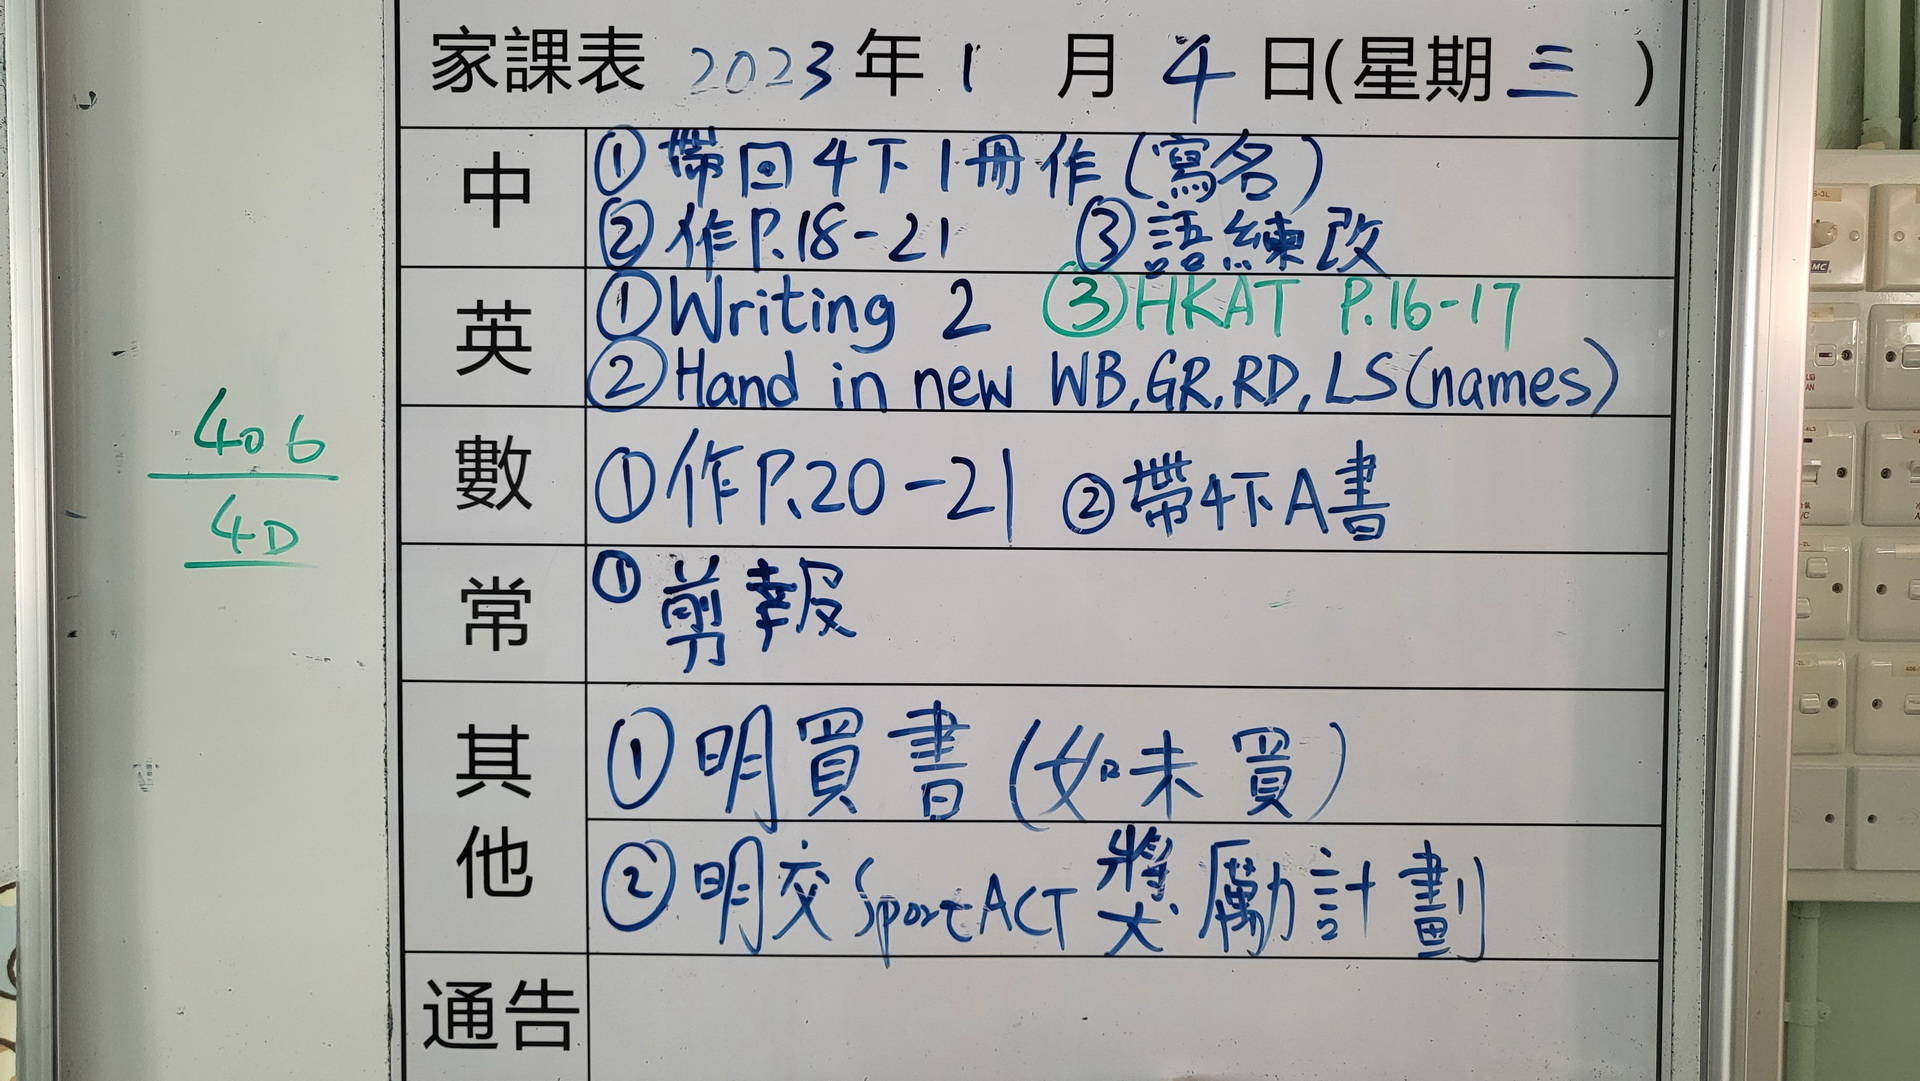 家課表 2023年1月4日(星期三)
中
①帶回4下1冊作(寫名)
②作P.18-21 ③語練改
英
①Writing 2 ③HKAT P.16-17
②Hand in new WB,GR,RD,LS(names)
數
①作P.20-21 ②帶4下A書
常
①剪報
其他
①明買書(如未買)
②明交SportACT獎勵計劃
通告
406
4D